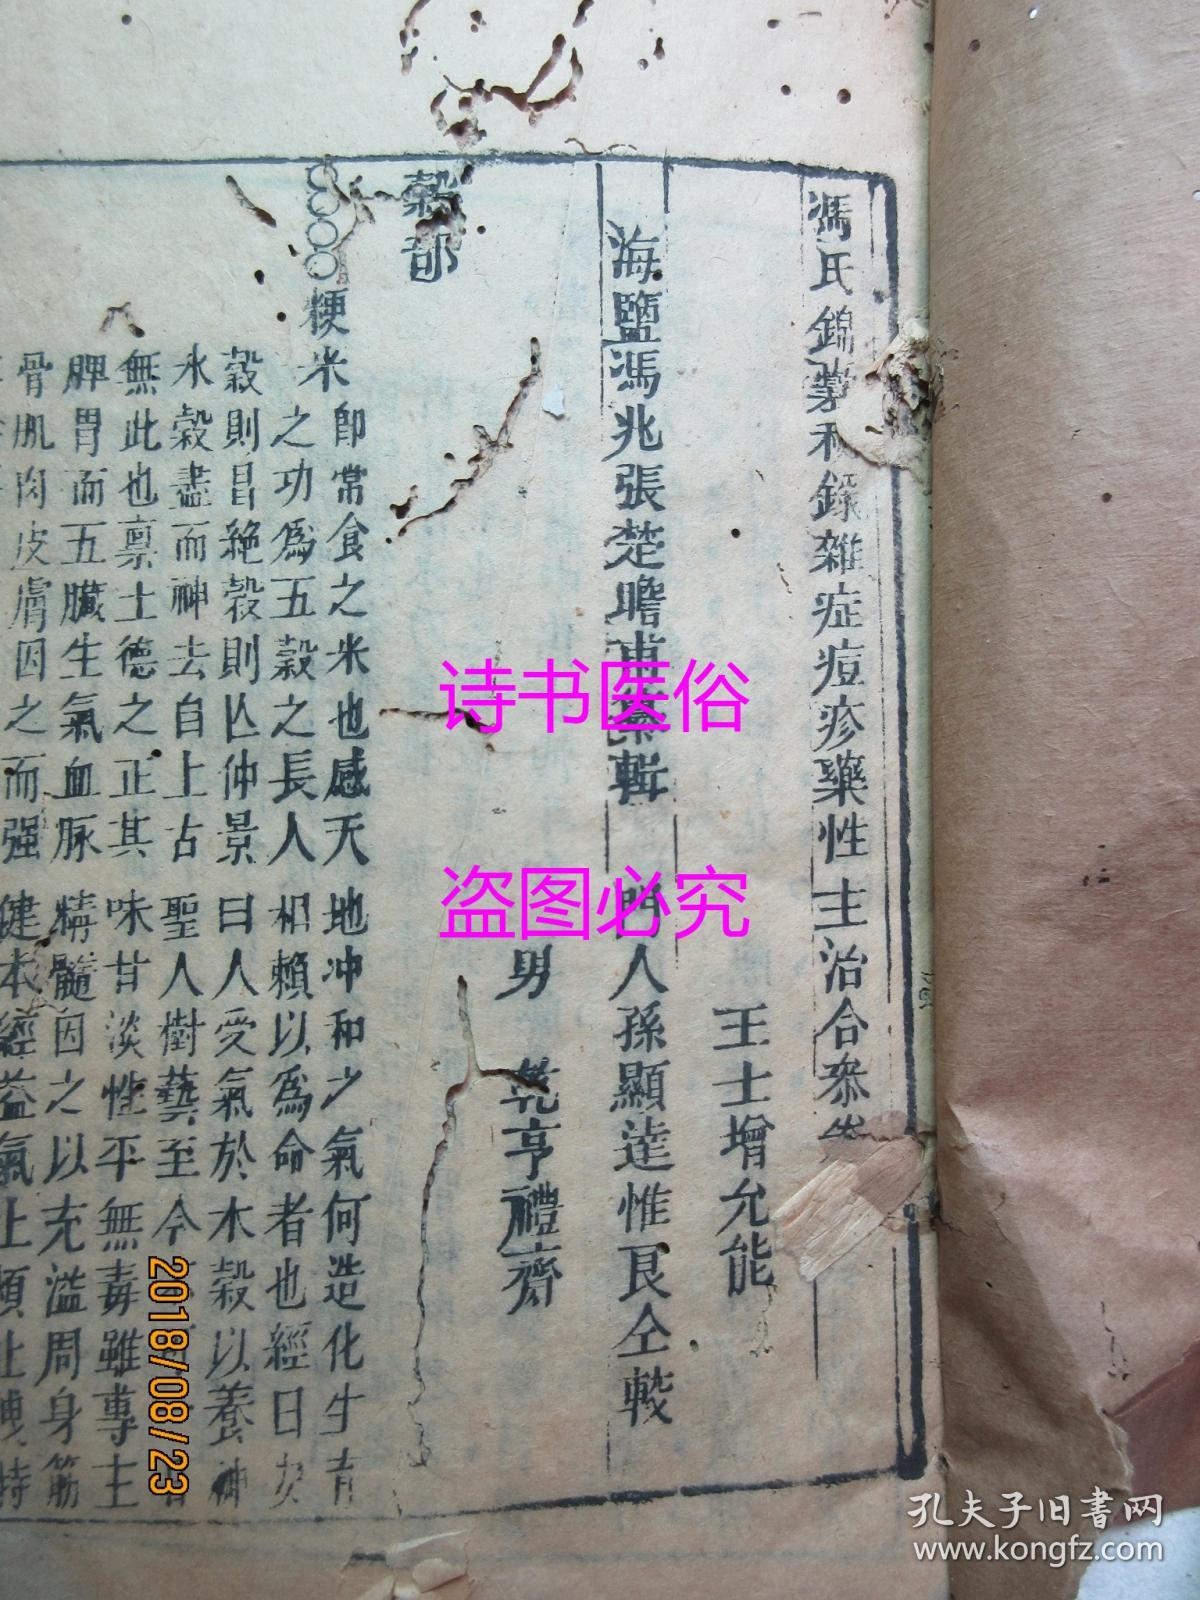 馮氏錦囊秘錄雜症痘疹藥性主治合參
王士增允能
海鹽馮兆張楚瞻甫纂輯 門人孫顯達惟良仝較
男 乾亨禮齋
穀部
○○○○粳米即常食之米也感天地冲和之氣何造化生育
之功為五穀之長人相賴以為命者也經曰安
穀則昌絶穀則亡仲景曰人受氣於水穀以養神
水穀盡而神去自上古聖人樹藝至今
無此也禀土德之正其味甘淡性平無毒雖專主
脾胃而五臟生氣血脉精髓因之以充溢周身筋
骨肌肉皮膚因之而强健本經益氣止煩止洩特
诗书医俗
盗图必究
2018/08/23
孔夫子旧书网
www.kongfz.com